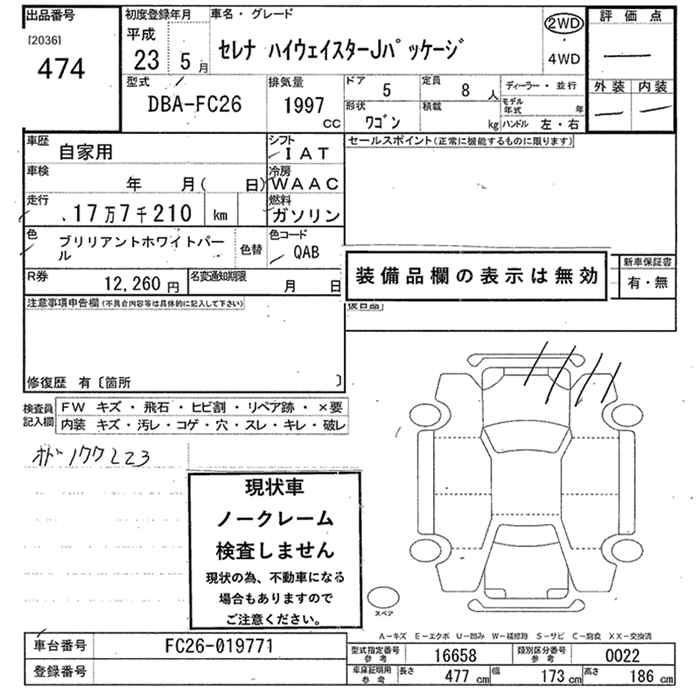 出品番号
[2036]
474
初度登録年月
平成
23 5 月
車名・グレード
セレナ ハイウェイスターJパッケージ
2WD
4WD
評価点
型式
DBA-FC26
排気量
1997
CC
ドア
5
定員
8 人
形状
ワゴン
積載
kg
ディーラー・並行
モデル年式 年
ハンドル 左・右
外装 内装
車歴
自家用
シフト
IAT
セールスポイント(正常に機能するものに限ります)
車検
年 月( 日)
冷房
WAAC
走行
17万7千210 km
燃料
ガソリン
色
ブリリアントホワイトパール
色替
色コード
QAB
R券
12,260円
名変通知期限
月 日
装備品欄の表示は無効
新車保証書
有・無
注意事項申告欄(不具合内容等は具体的に記入して下さい)
修復歴 有〔箇所 〕
検査員記入欄
FW キズ・飛石・ヒビ割・リペア跡・×要
内装 キズ・汚レ・コゲ・穴・スレ・キレ・破レ
現状車
ノークレーム
検査しません
現状の為、不動車になる
場合もありますので
ご注意ください。
スペア
A-キズ E-エクボ U-凹み W-補修跡 S-サビ C-腐食 XX-交換済
車台番号
FC26-019771
登録番号
型式指定番号
参考
16658
類別区分番号
参考
0022
車庫証明用
参考
長さ
477 cm
幅
173 cm
高さ
186 cm